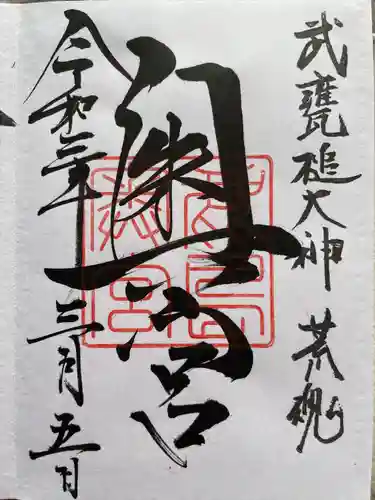 武甕槌大神 荒魂
奥宮
鹿島奥宮
令和三年三月五日